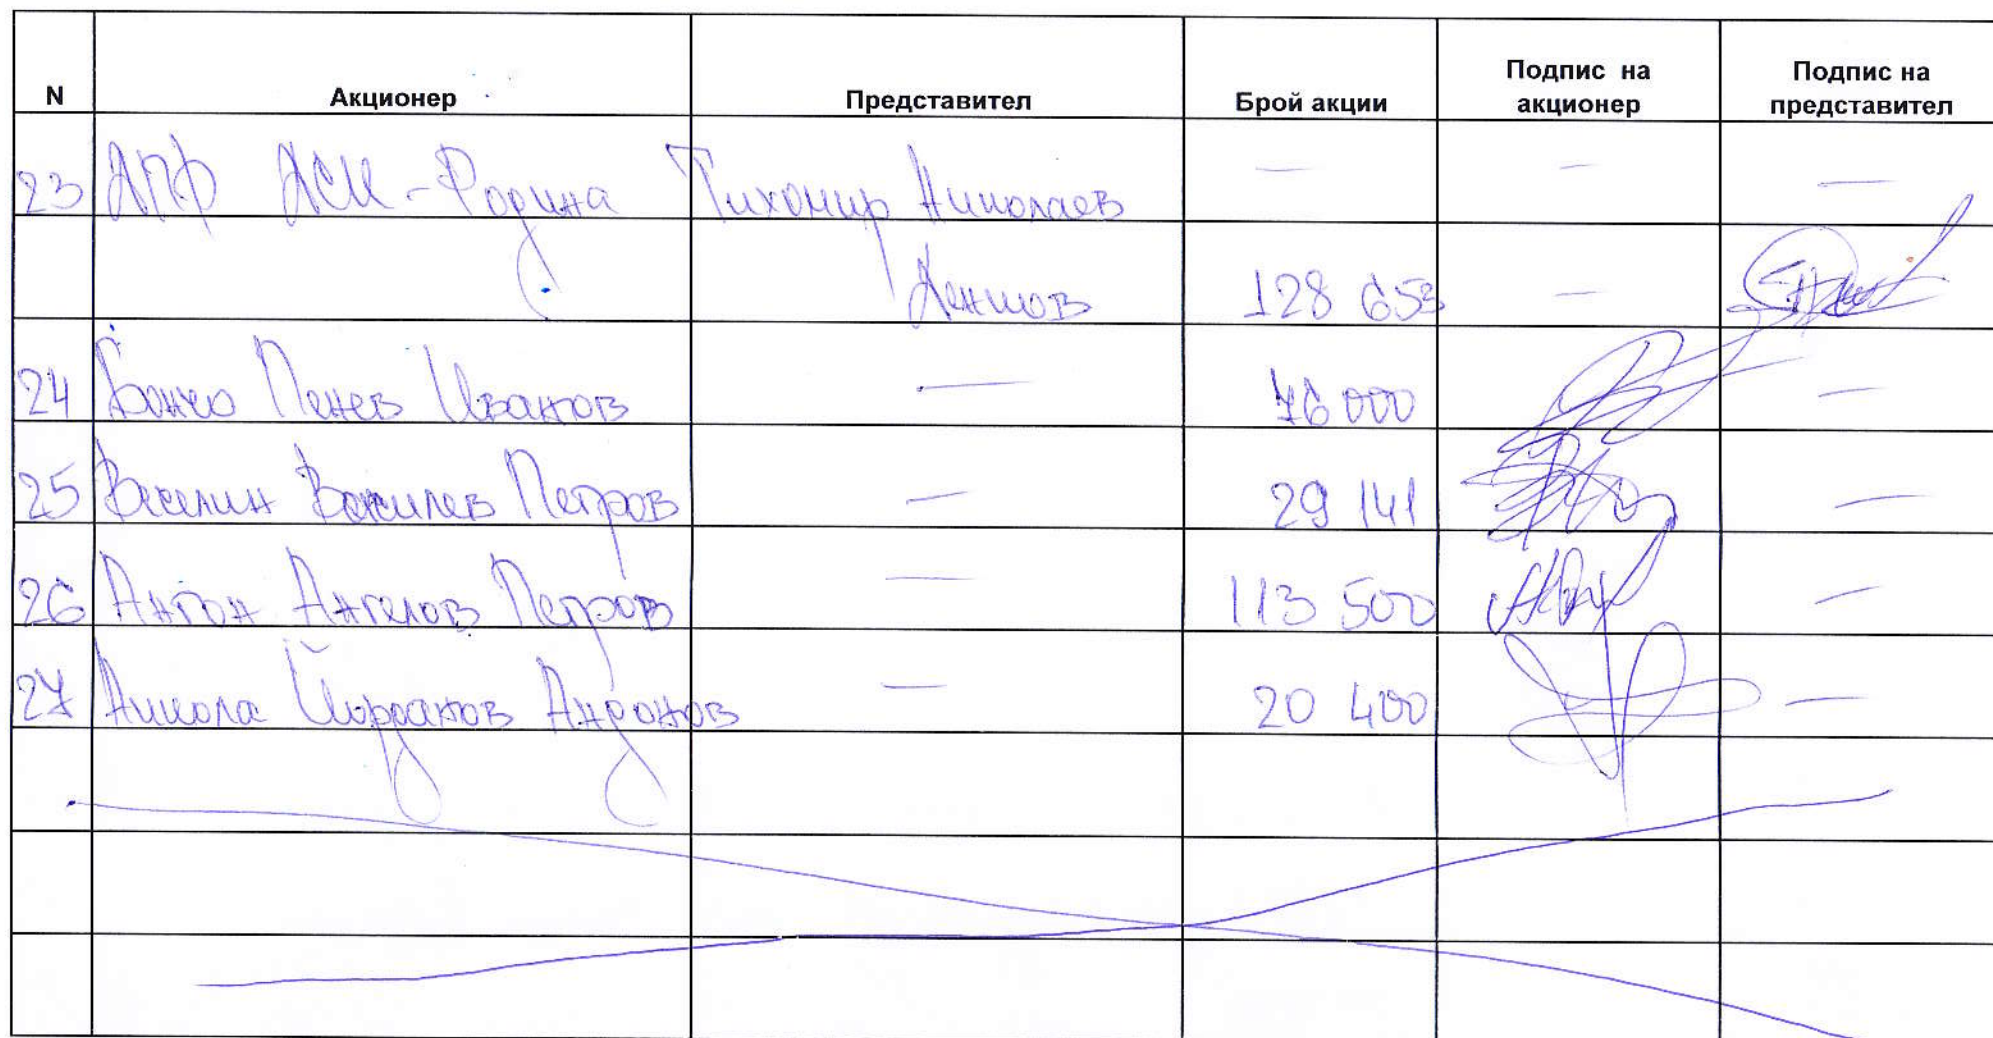 N Акционер Представител Брой акции Подпис на акционер Подпис на представител
23 ДПФ ДСИ - Родина Тихомир Николаев — — —
Денков 128 653 —
24 Бончо Пенев Иванов — 76 000 —
25 Веселин Василев Петров — 29 141 —
26 Антон Ангелов Петров — 113 500 —
27 Никола Йорданов Андонов — 20 400 —